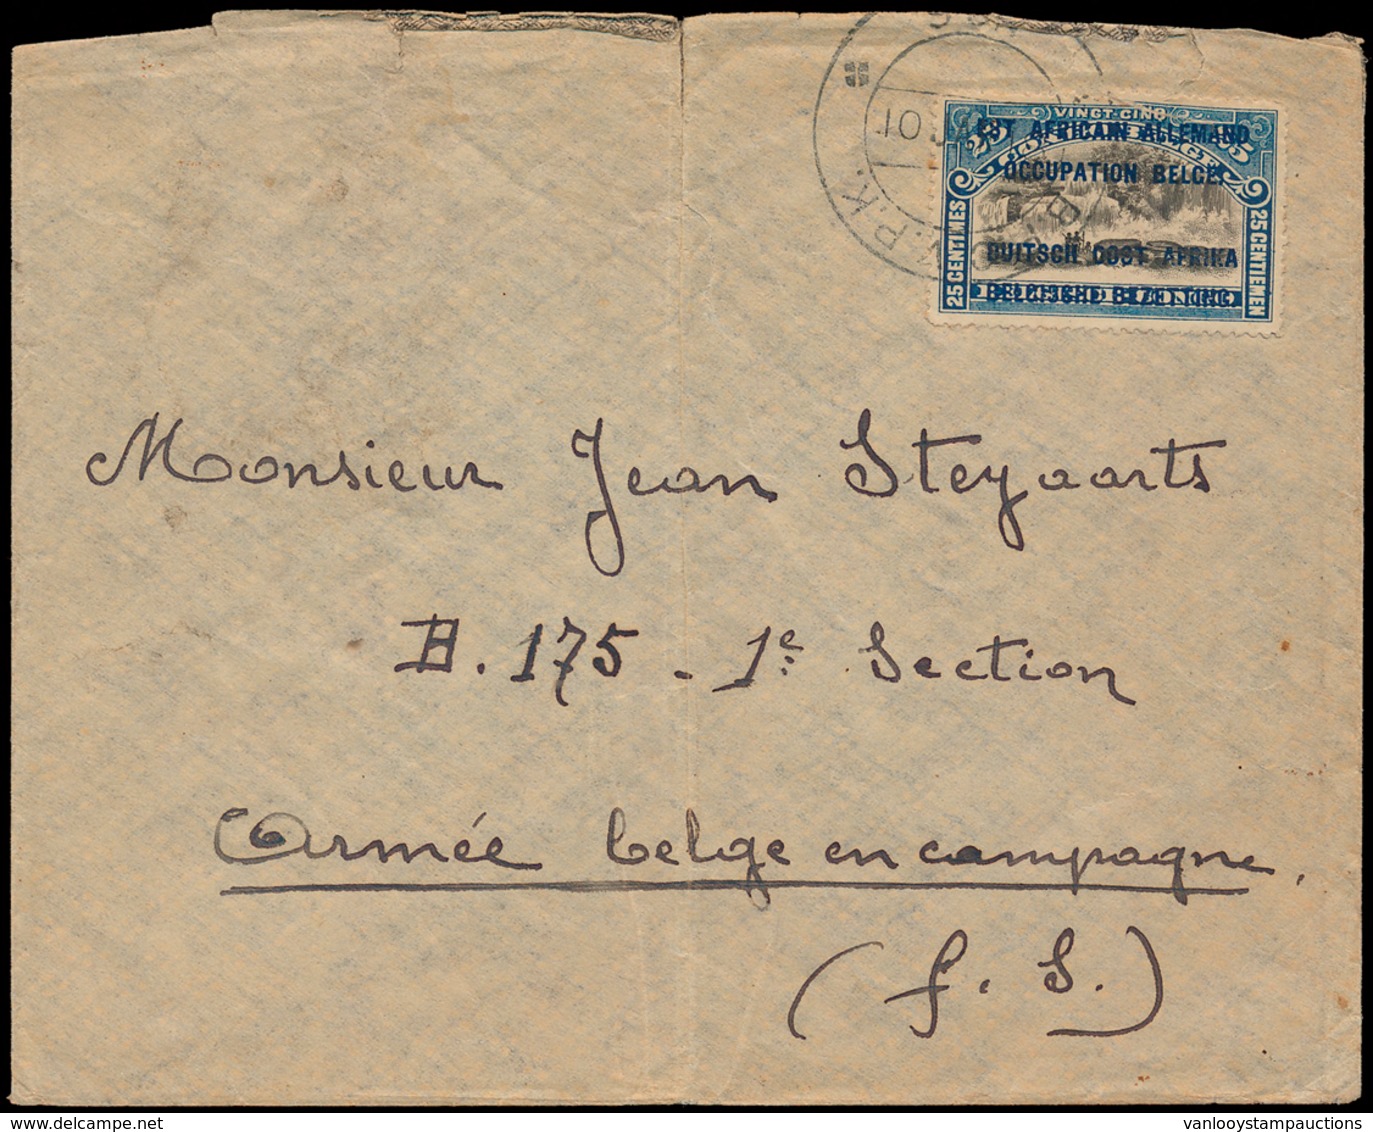 10 JA
B.P.C.V.P.K.
VINGT-CINQ
25 25
EST AFRICAIN ALLEMAND
OCCUPATION BELGE.
DUITSCH OOST AFRIKA
BELGISCHE BEZETTING.
25 CENTIMES
25 CENTIEMEN
Monsieur Jean Steyaarts
B. 175 - 1e Section
Armée belge en campagne,
(f. S.)
vanlooystampauctions